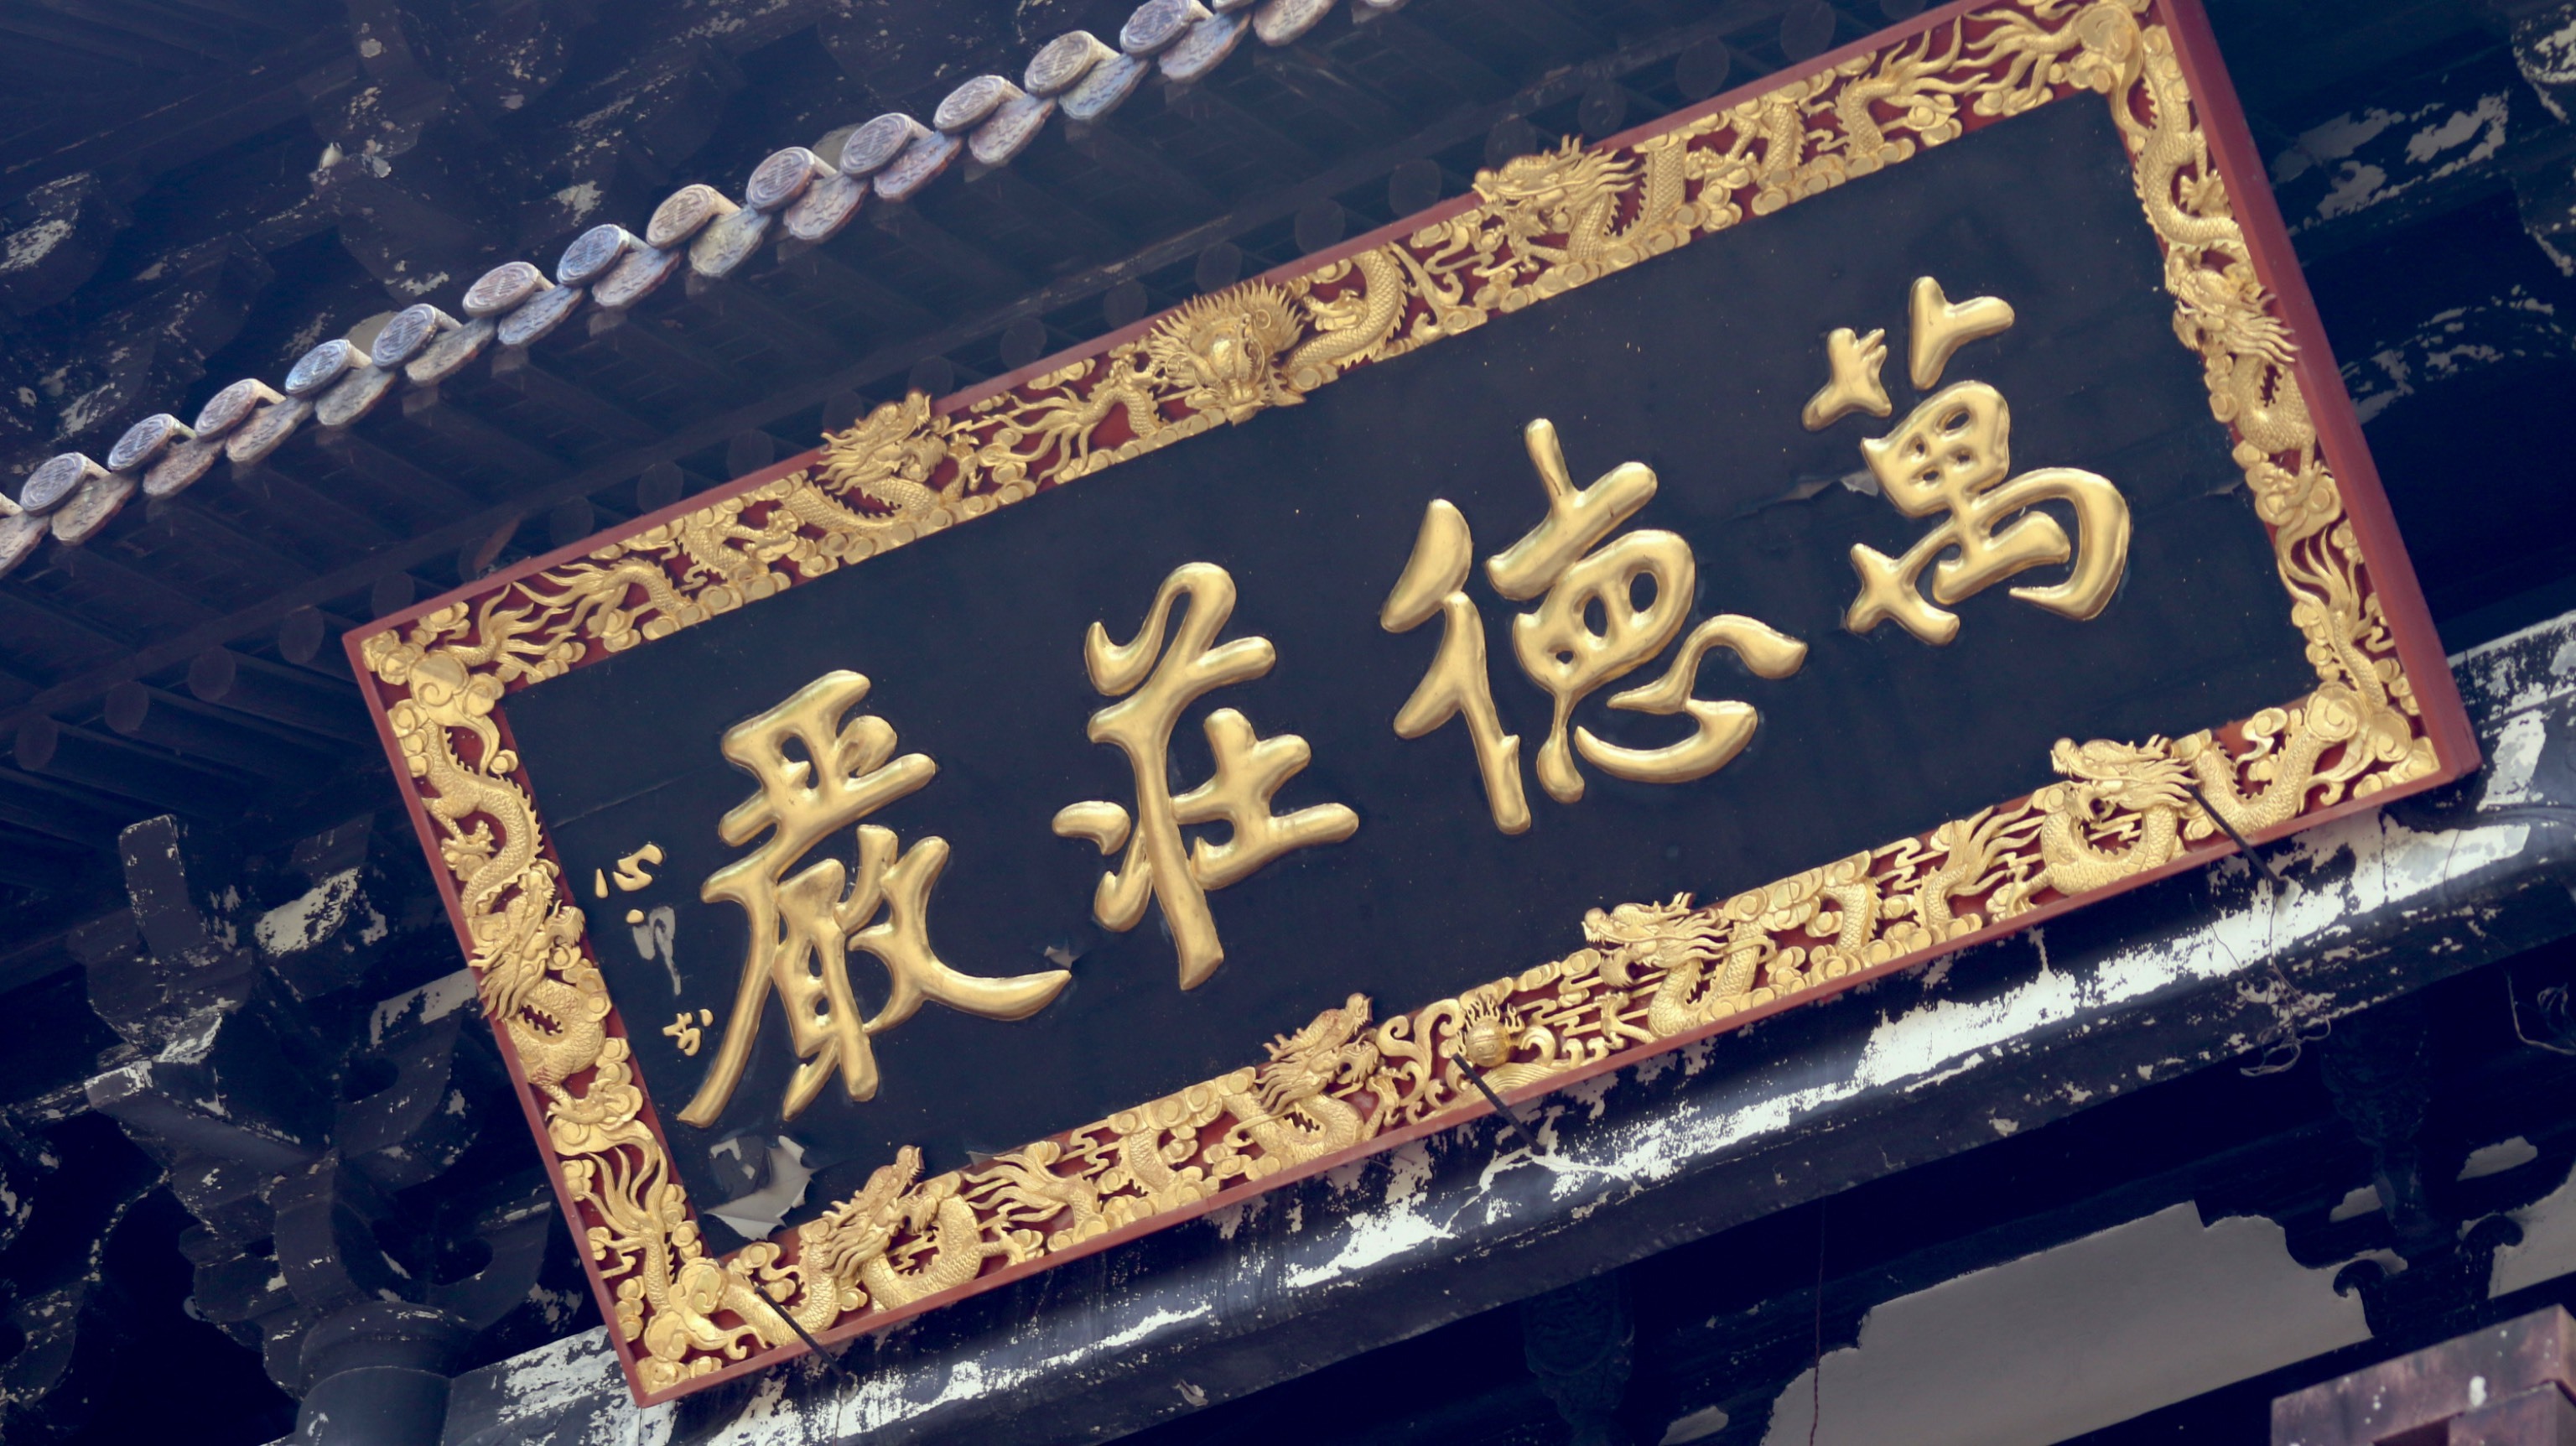 萬德莊嚴